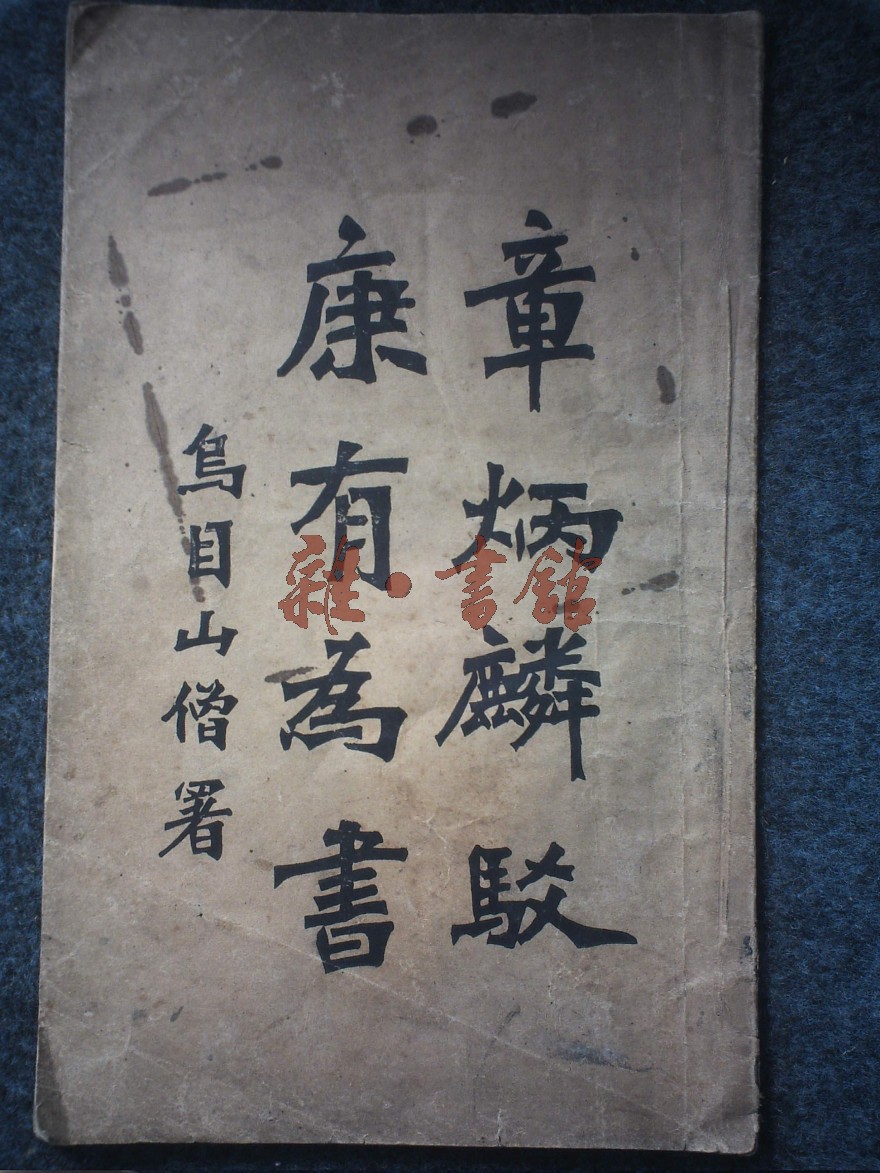 章炳麟駁
康有為書
烏目山僧署
雜·書館